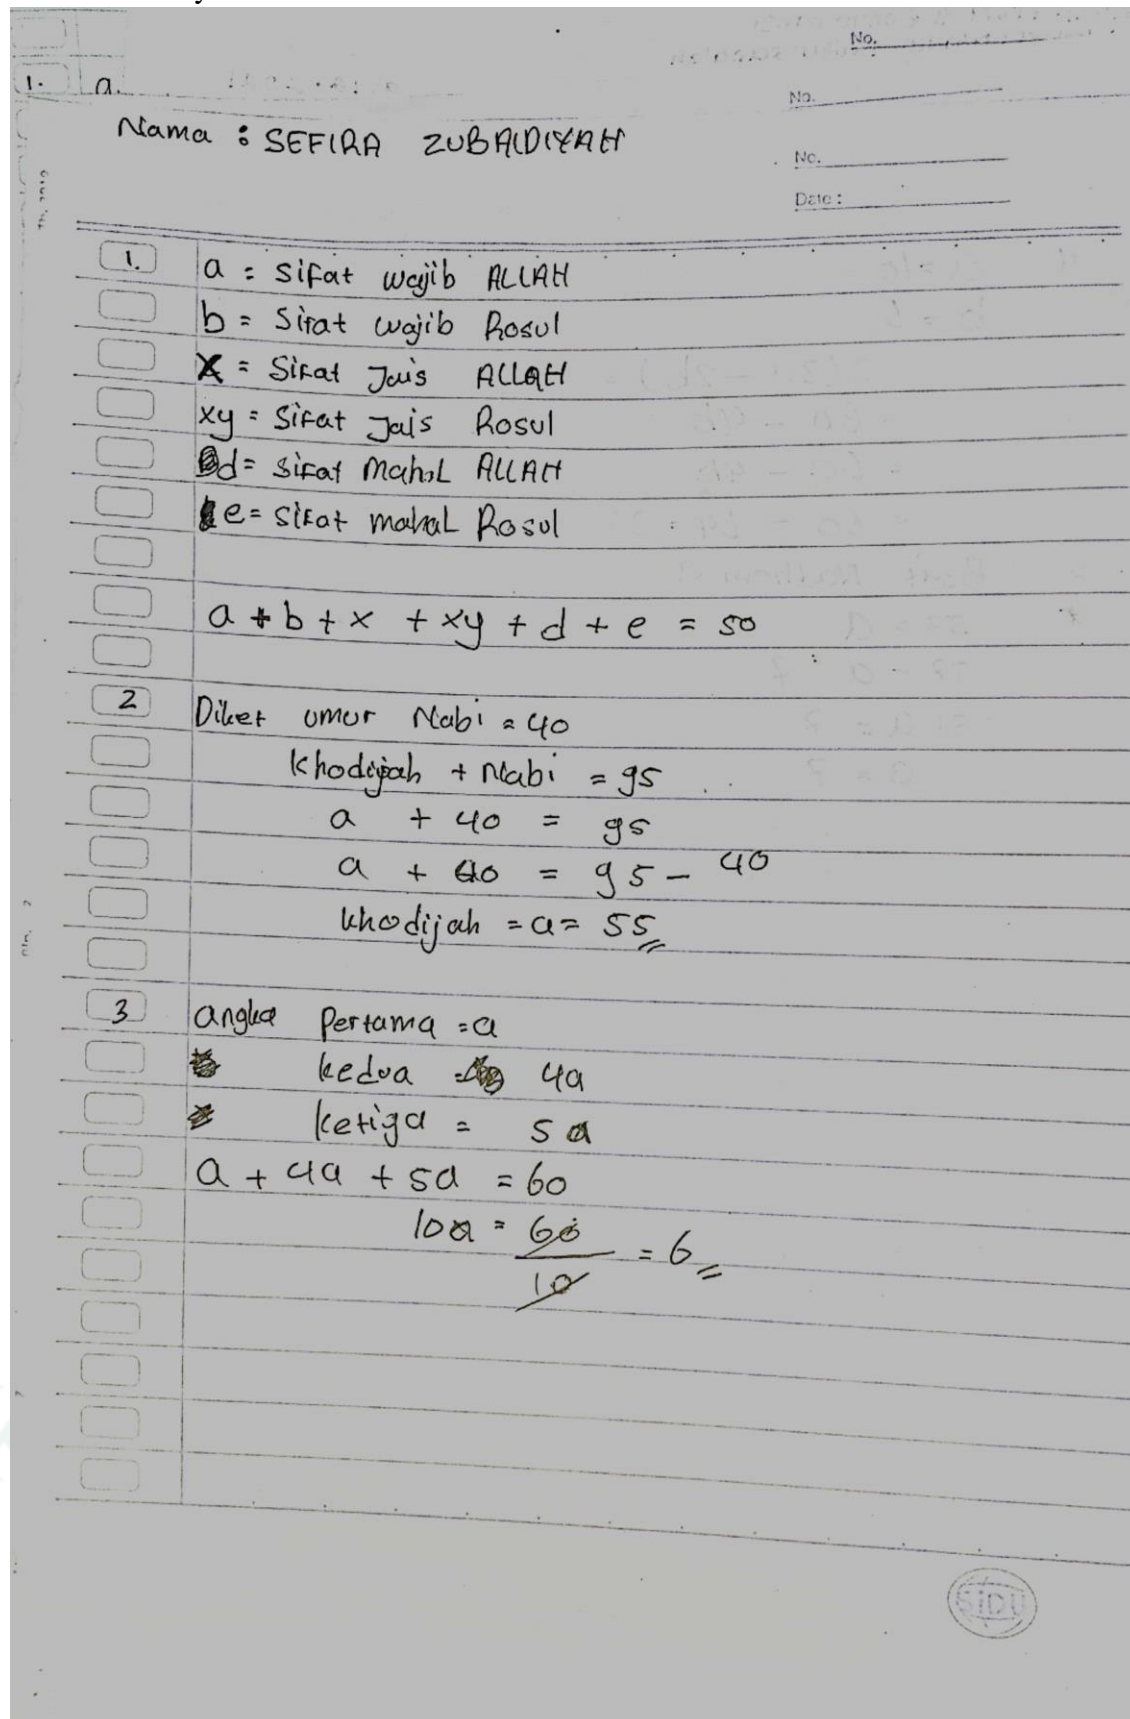 No.
1. a.
No.
Nama : SEFIRA ZUBAIDIYAH
No.
Date :
1. a = Sifat wajib ALLAH
b = Sifat wajib Rosul
X = Sifat Jais ALLAH
xy = Sifat Jais Rosul
d = Sifat Mahal ALLAH
e = Sifat mahal Rosul
a + b + x + xy + d + e = 50
2 Diket umur Nabi = 40
Khodijah + Nabi = 95
a + 40 = 95
a + 40 = 95 - 40
khodijah = a = 55
3 angka Pertama = a
kedua = 4a
ketiga = 5a
a + 4a + 5a = 60
10a = 60/10 = 6
SiDU